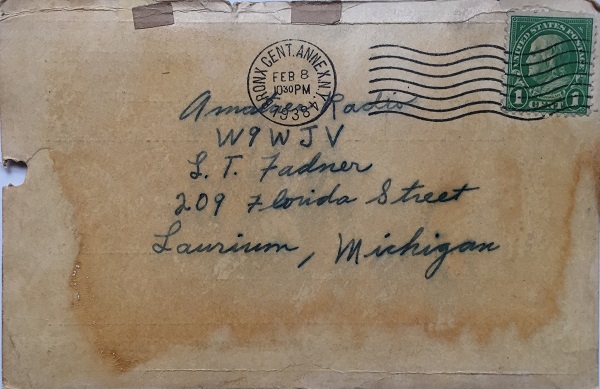 BRONX CENT. ANNEX, N.Y.
FEB 8
1030PM
1938
UNITED STATES POSTAGE
1 CENT 1
Amateur Radio
W9WJV
L. T. Fadner
209 Florida Street
Laurium, Michigan